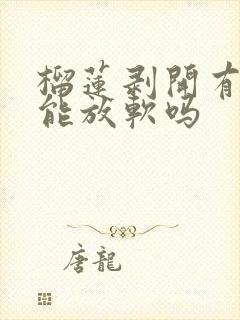 榴蓮剥開有
能放軟嗎
唐龍